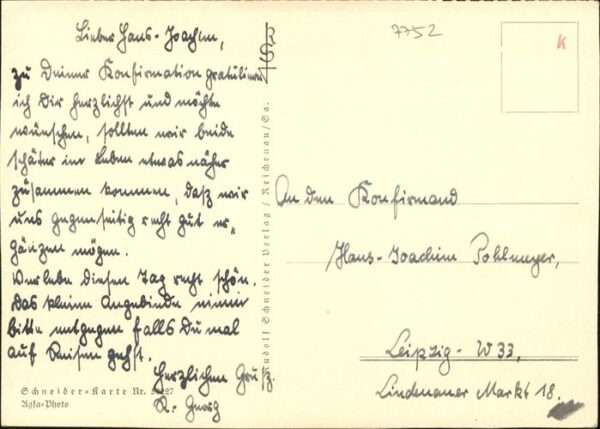 Lieber Hans-Joachim,
zu Deiner Konfirmation gratuliere
ich Dir herzlichst und möchte
wünschen, sollten wir beide
später im Leben etwas näher
zusammen kommen, daß wir
uns gegenseitig recht gut er-
gänzen mögen.
Verlebe diesen Tag recht schön.
Das kleine Angebinde nimm
bitte entgegen falls Du mal
auf Reisen gehst.
Herzlichen Gruß.
K. Georg
Schneider-Karte Nr.
Agfa-Photo
Rudolf Schneider Verlag / Reichenau/Sa.
7752
K
An den Konfirmand
Hans-Joachim Pohlmeyer,
Leipzig-W 33,
Lindenauer Markt 18.